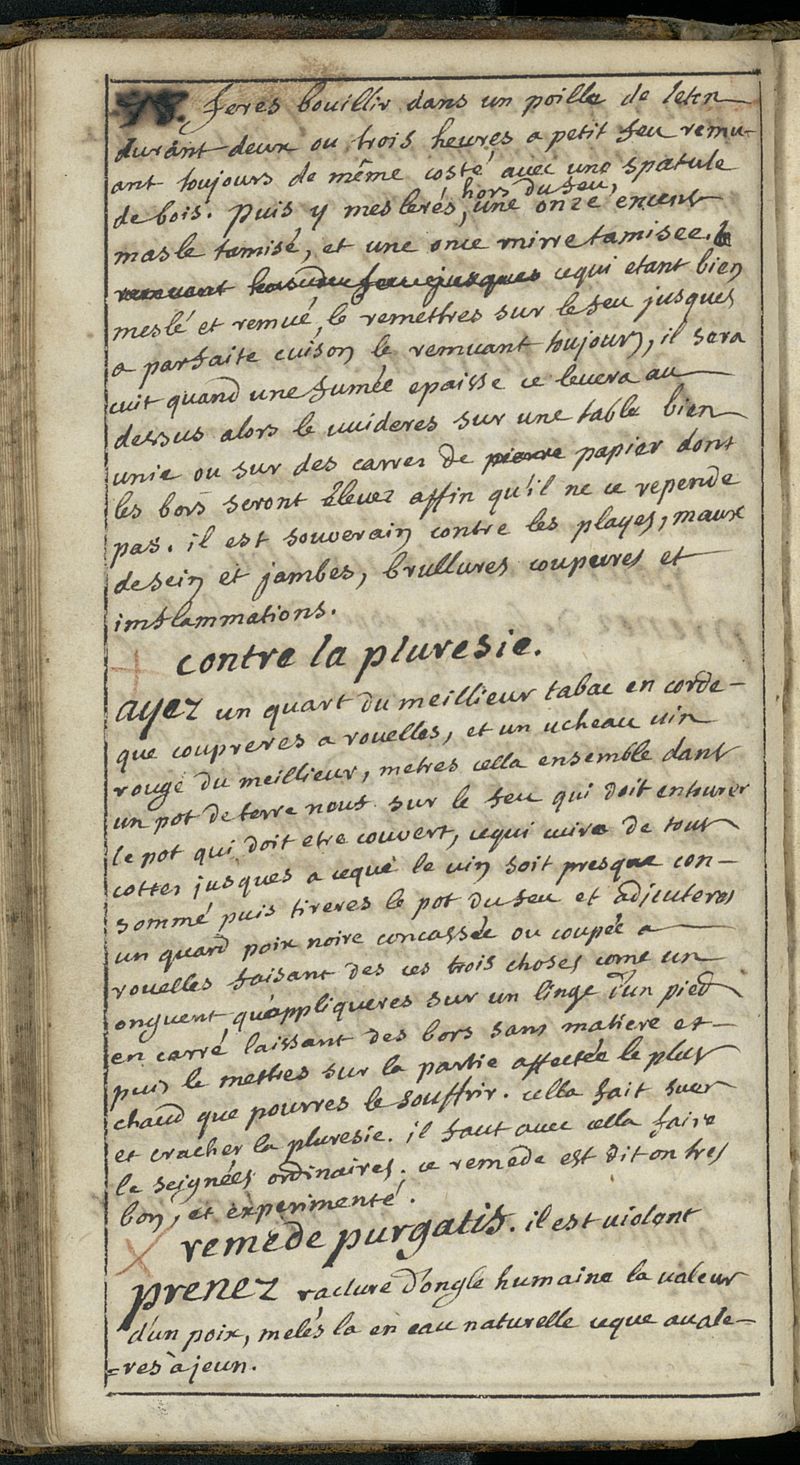 78. feres bouillir dans un poille de leten
durant deux ou trois heures a petit feu remu-
ant toujours de même costé avec une spatule
de bois. puis y meslerés, hors du feu, une onze encens
masle tamisé, et une once mirre tamisee. le
remuant hors du feu jusques cequi etant bien
meslé et remué, le remettres sur le feu jusques
a parfaite cuison le remuant toujours, il sera
cuit quand une fumée epaisse ce levera au
dessus alors le vuideres sur une table bien
unie ou sur des carrez de pierre papier dont
les bors seront élevez affin qu'il ne ce repende
pas. il est souverain contre les playes, maux
de sein et jambes, brullures coupeures et
imflammations.
contre la pluresie.
ayez un quart du meillieur tabac en corde-
que coupreres a rouelles, et un ucheau vin
rouge du meillieur, metres cella ensemble dans
un pot de terre nous sur le feu qui doit entourer
le pot qui doit etre couvert, cequi cuira de tout
cottes jusques a ceque le vin soit presque con-
sommé puis tireres le pot du feu et adjeuteres
un quard poix noire concassée ou coupée a
rouelles faisant des ces trois choses come un
onguent qu'appliqueres sur un linge d'un pied
en carré laissant des bors sans matiere et-
puis le mettres sur la partie affectée le plus
chaud que pourres le souffrir. cella fait suer
et cracher la pluresie. il faut avec cella faire
le seignées ordinaires. ce remede est dit on tres
bon, et experimenté.
remede purgatif. il est violant
prenez raclure d'ongle humaine la valeur
d'un poix, melés la en eau naturelle ceque avale-
=res à jeun.